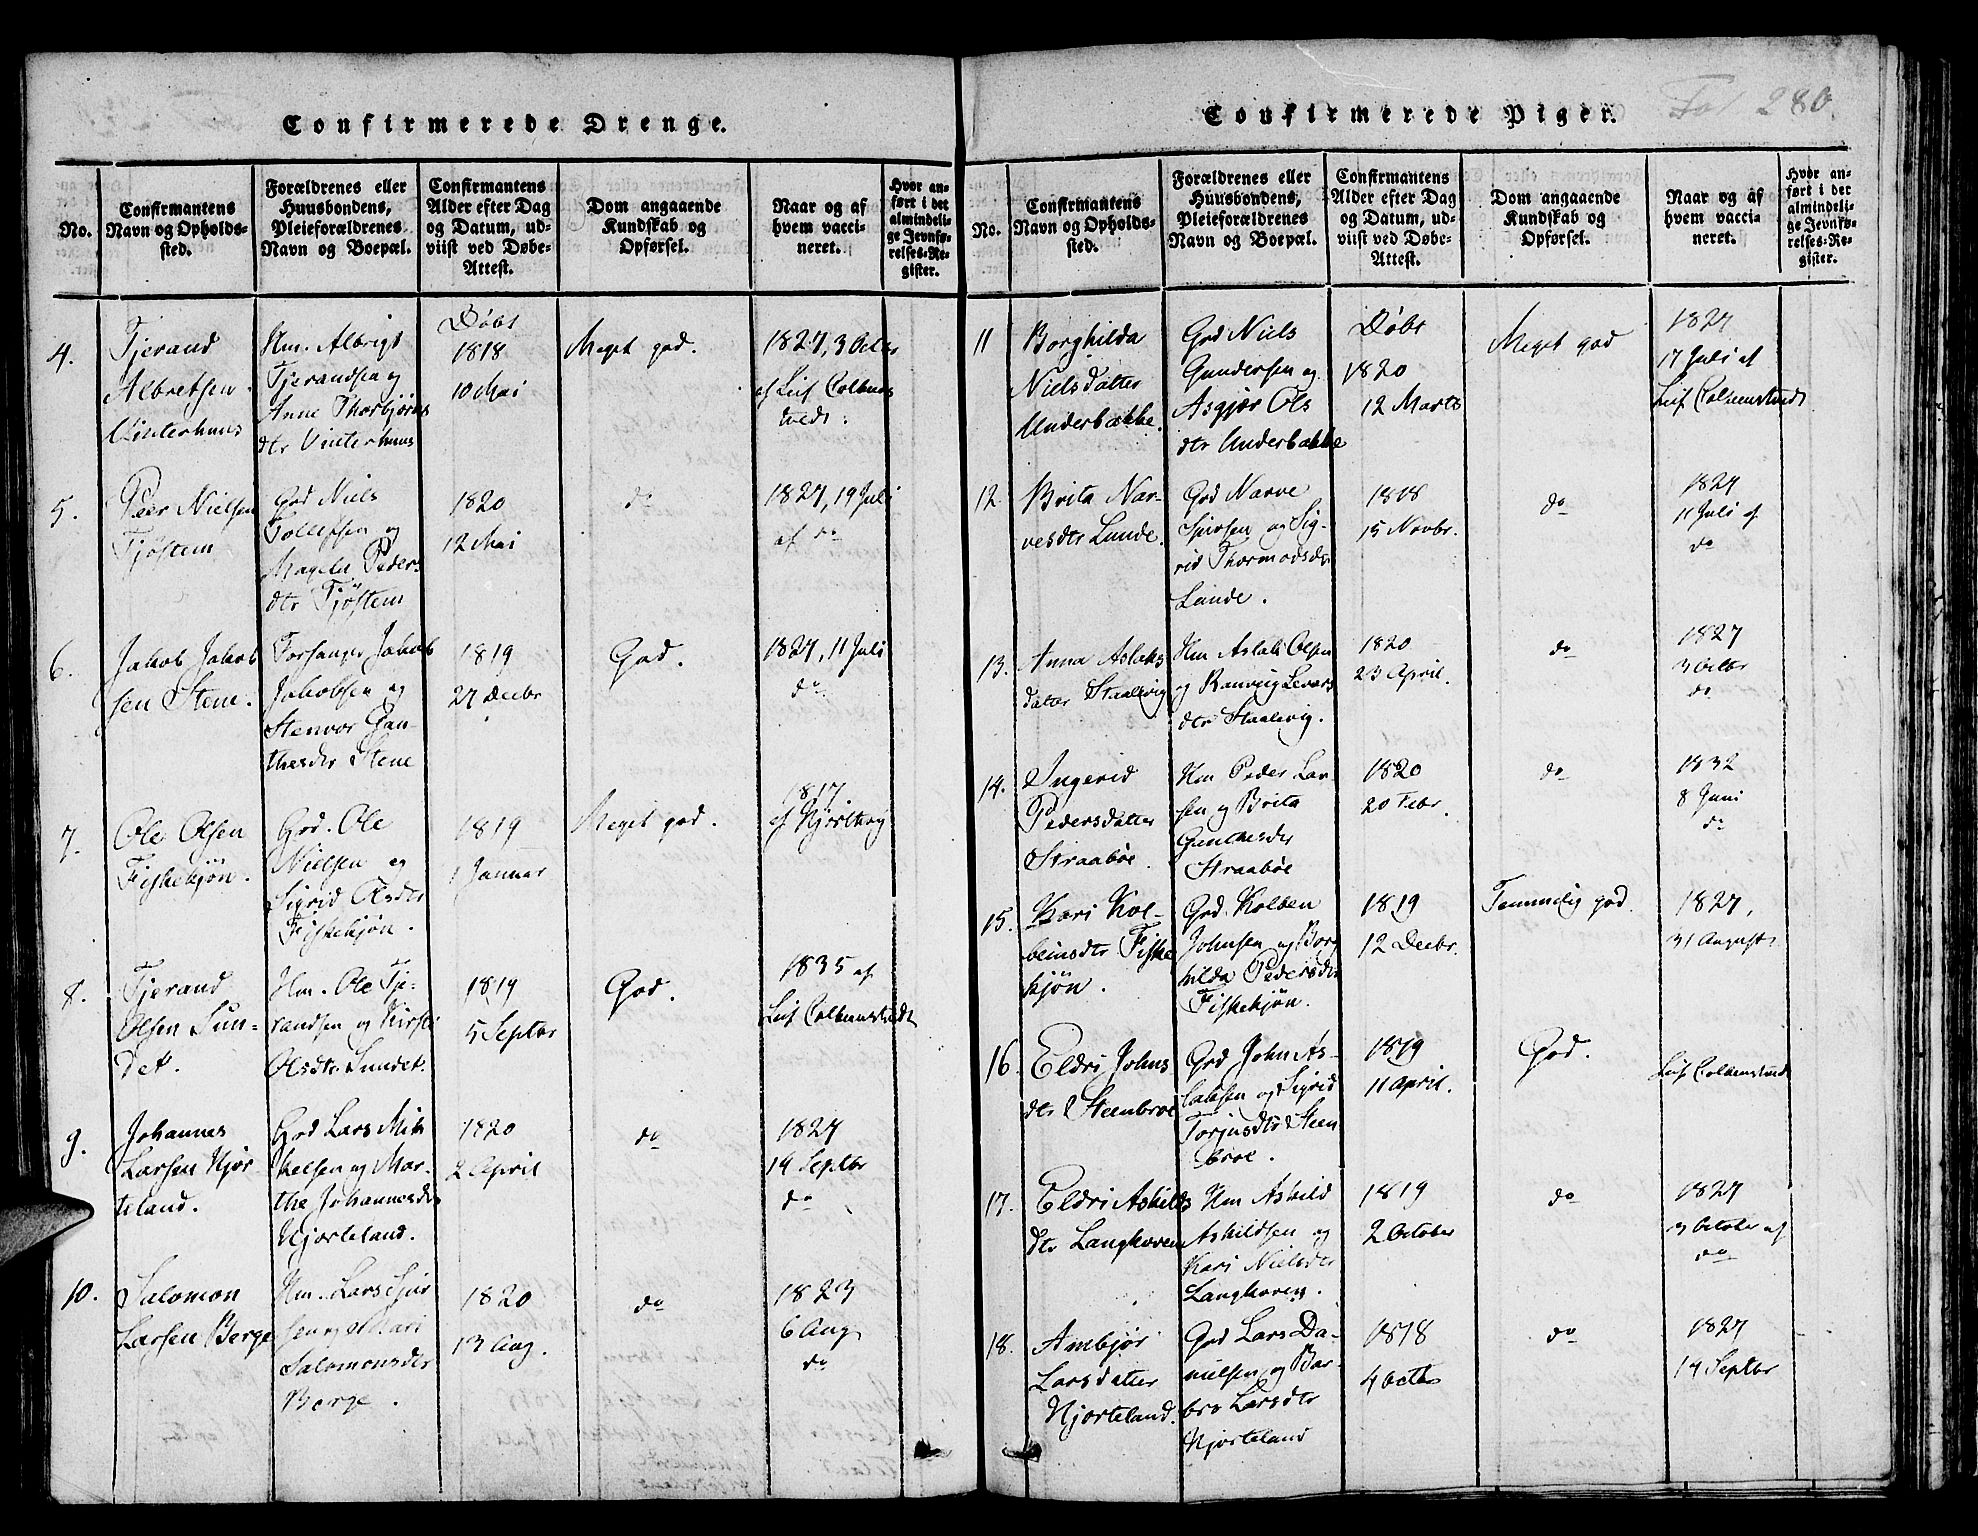 Confirmerede Drenge.
No.
Confirmantens
Navn og Opholds-
sted.
Forældrenes eller
Huusbondens,
Pleieforældrenes
Navn og Boepæl.
Confirmantens
Alder efter Dag
og Datum, ud-
viist ved Døbe-
Attest.
Dom angaaende
Kundskab og
Opførsel.
Naar og af
hvem vacci-
neret.
Hvor an-
ført i det
almindeli-
ge Jevnfø-
relses-Re-
gister.
4.
Tjerand
Albretsen
Vinterhuus
Hm. Albrigt
Tjerandsen og
Anne Thorbjørns
dtr Vinterhuus
Døbt
1818
10 Mai
Meget god.
1827, 3 Octbr
af Leif Colbens
tvedt.
5.
Peer Nielsen
Tjøstem
Grd Niels
Tollefsen og
Magela Peders
dtr Tjøstem
1820
12 Mai
do
1827, 19 Juli
af do
6.
Jakob Jakob
sen Stene.
Forsanger Jakob
Jakobsen og
Stenvor Gun
thesdtr Stene
1819
27 Decbr
God.
1827, 11 Juli
do
7.
Ole Olsen
Fiskekjøn.
Grd. Ole
Nielsen og
Sigrid Olsdtr
Fiskekjøn.
1819
1 Januar
Meget god.
1817
af
8.
Tjerand
Olsen Sun-
det.
Hm. Ole Tje-
randsen og Kirsti
Olsdtr Sundet.
1819
5 Septbr
God.
1835 af
Leif Colbenstvedt
9.
Johannes
Larsen Hjor-
teland.
Grd Lars Mik
kelsen og Mar-
the Johannesdtr
Hjorteland.
1820
2 April
do
1827
19 Septbr
do
10.
Salomon
Larsen Berge
Hm. Lars Sjur
sen og Mari
Salomonsdtr
Berge.
1820
13 Aug.
do
1823
6 Aug.
do
Confirmerede Piger.
Fol 280.
No.
Confirmantens
Navn og Opholds-
sted.
Forældrenes eller
Huusbondens,
Pleieforældrenes
Navn og Boepæl.
Confirmantens
Alder efter Dag
og Datum, ud-
viist ved Døbe-
Attest.
Dom angaaende
Kundskab og
Opførsel.
Naar og af
hvem vacci-
neret.
Hvor an-
ført i det
almindeli-
ge Jevnfø-
relses-Re-
gister.
11
Borghilda
Nielsdatter
Underbakke.
Grd Niels
Gundersen og
Asgjær Ols
dtr Underbakke
Døbt
1820
12 Marts
Meget god
1827
17 Juli af
Leif Colbenstvedt
12.
Brita Nar-
vesdtr Lunde.
Grd Narve
Sjursen og Sig-
rid Thormodsdtr
Lunde.
1818
15 Novbr.
do
1827
11 Juli af
do
13.
Anna Aslaks
datter Staalevig
Hm Aslak Olsen
og Ranveig Levars
dtr Staalevig.
1820
23 April.
do
1827
3 Octbr
do
14.
Ingerid
Pedersdatter
Straabøe.
Hm Peder Lar-
sen og Brita
Gunthesdtr
Straabøe
1820
20 Febr.
do
1832
8 Juni
do
15.
Kari Kol-
beinsdtr Fiske
kjøn.
Grd. Kolben
Johnsen og Borg
hilda Pedersdtr
Fiskekjøn.
1819
12 Decbr.
Temmelig god.
1827,
31 August
16.
Eldri Johns
dtr Steenbroe
Grd John As-
laksen og Sigrid
Torjusdtr Steen
broe.
1819
11 April.
God.
Leif Colbenstvedt
17.
Eldri Askilds
dtr Langhoven
Hm Askild
Askildsen og
Kari Nielsdtr
Langhoven.
1819
2 October
do
1827
3 October af
do
18.
Ambjør
Larsdatter
Hjorteland.
Grd Lars Da-
nielsen og Bar-
bro Larsdtr
Hjorteland
1818
4 Octbr
do
1827
19 Septbr